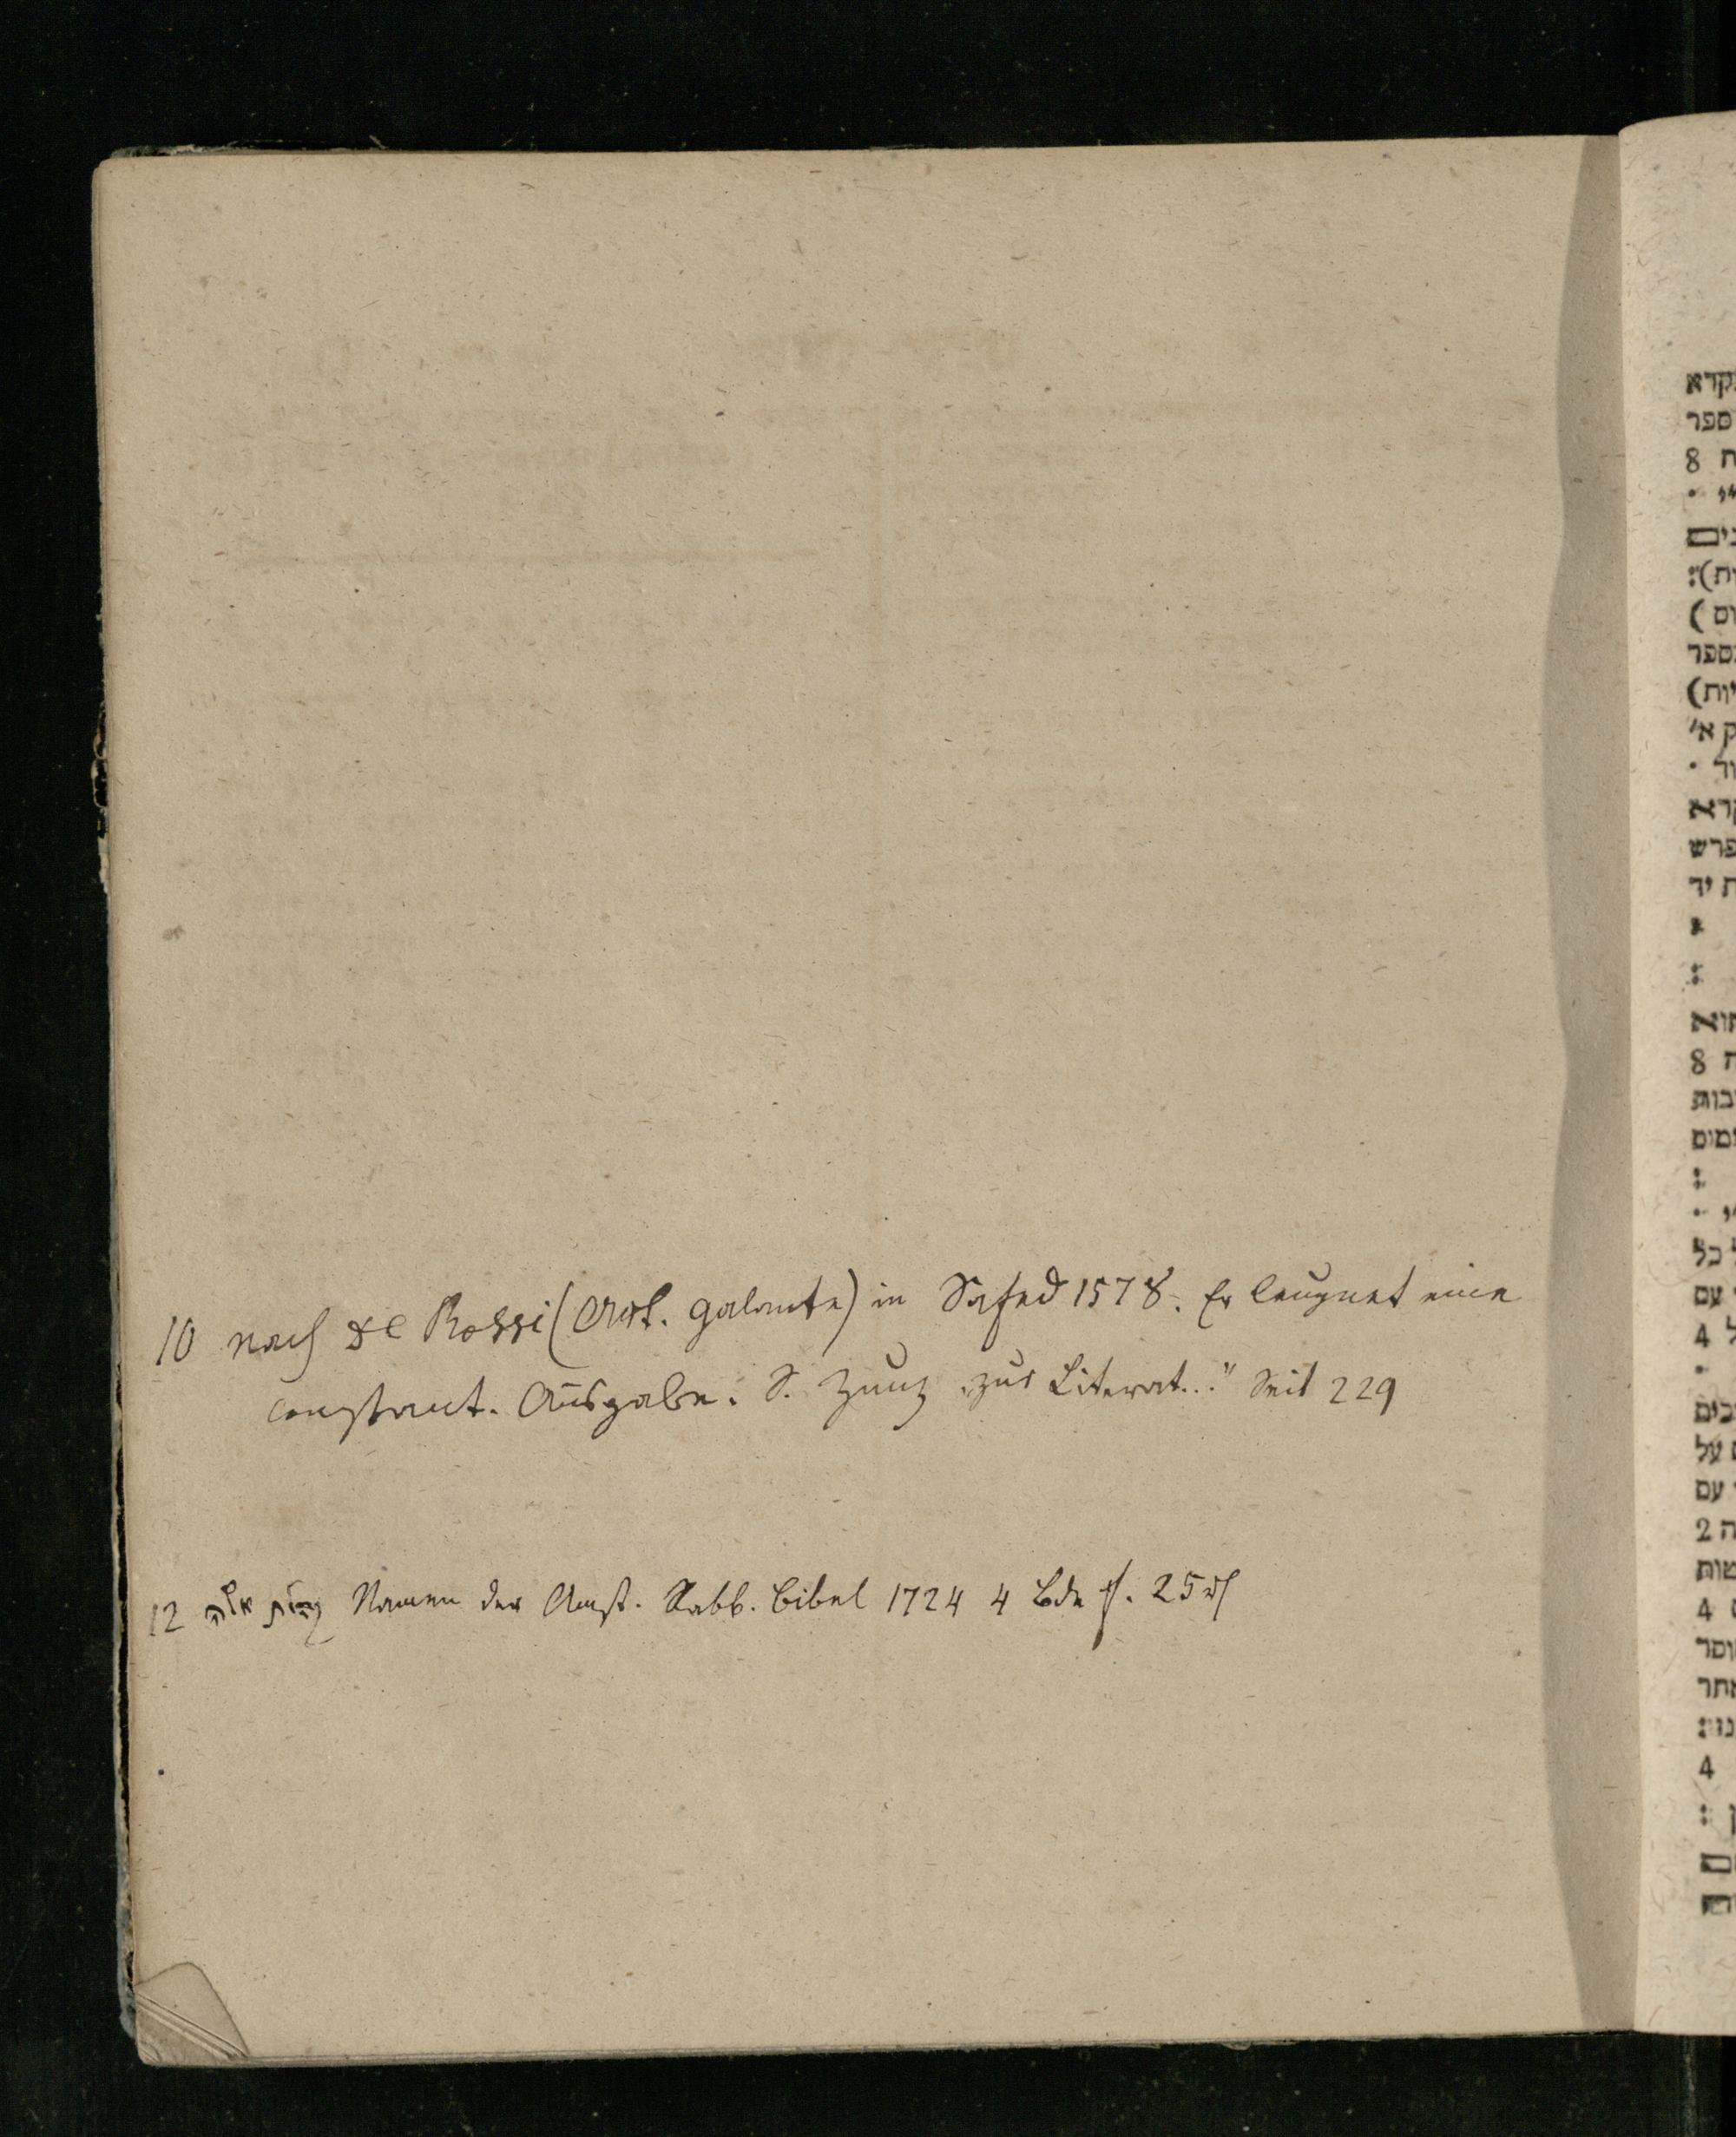 10 nach de Rossi (Art. Galante) in Safed 1578. Er leugnet eine
constant. Ausgabe. S. Zunz „zur Literat..." Seit 229
12 קהלת משה Namen der Amst. Rabb. Bibel 1724 4 Bde f. 25
קרא
ספר
ת 8
ים
ות):
ום )
ספר
יות)
ק א'
קרא
פרש
ת יד
:
הוא
ה 8
:
כל
עם
4
בים
על
עם
ה 2
4
4